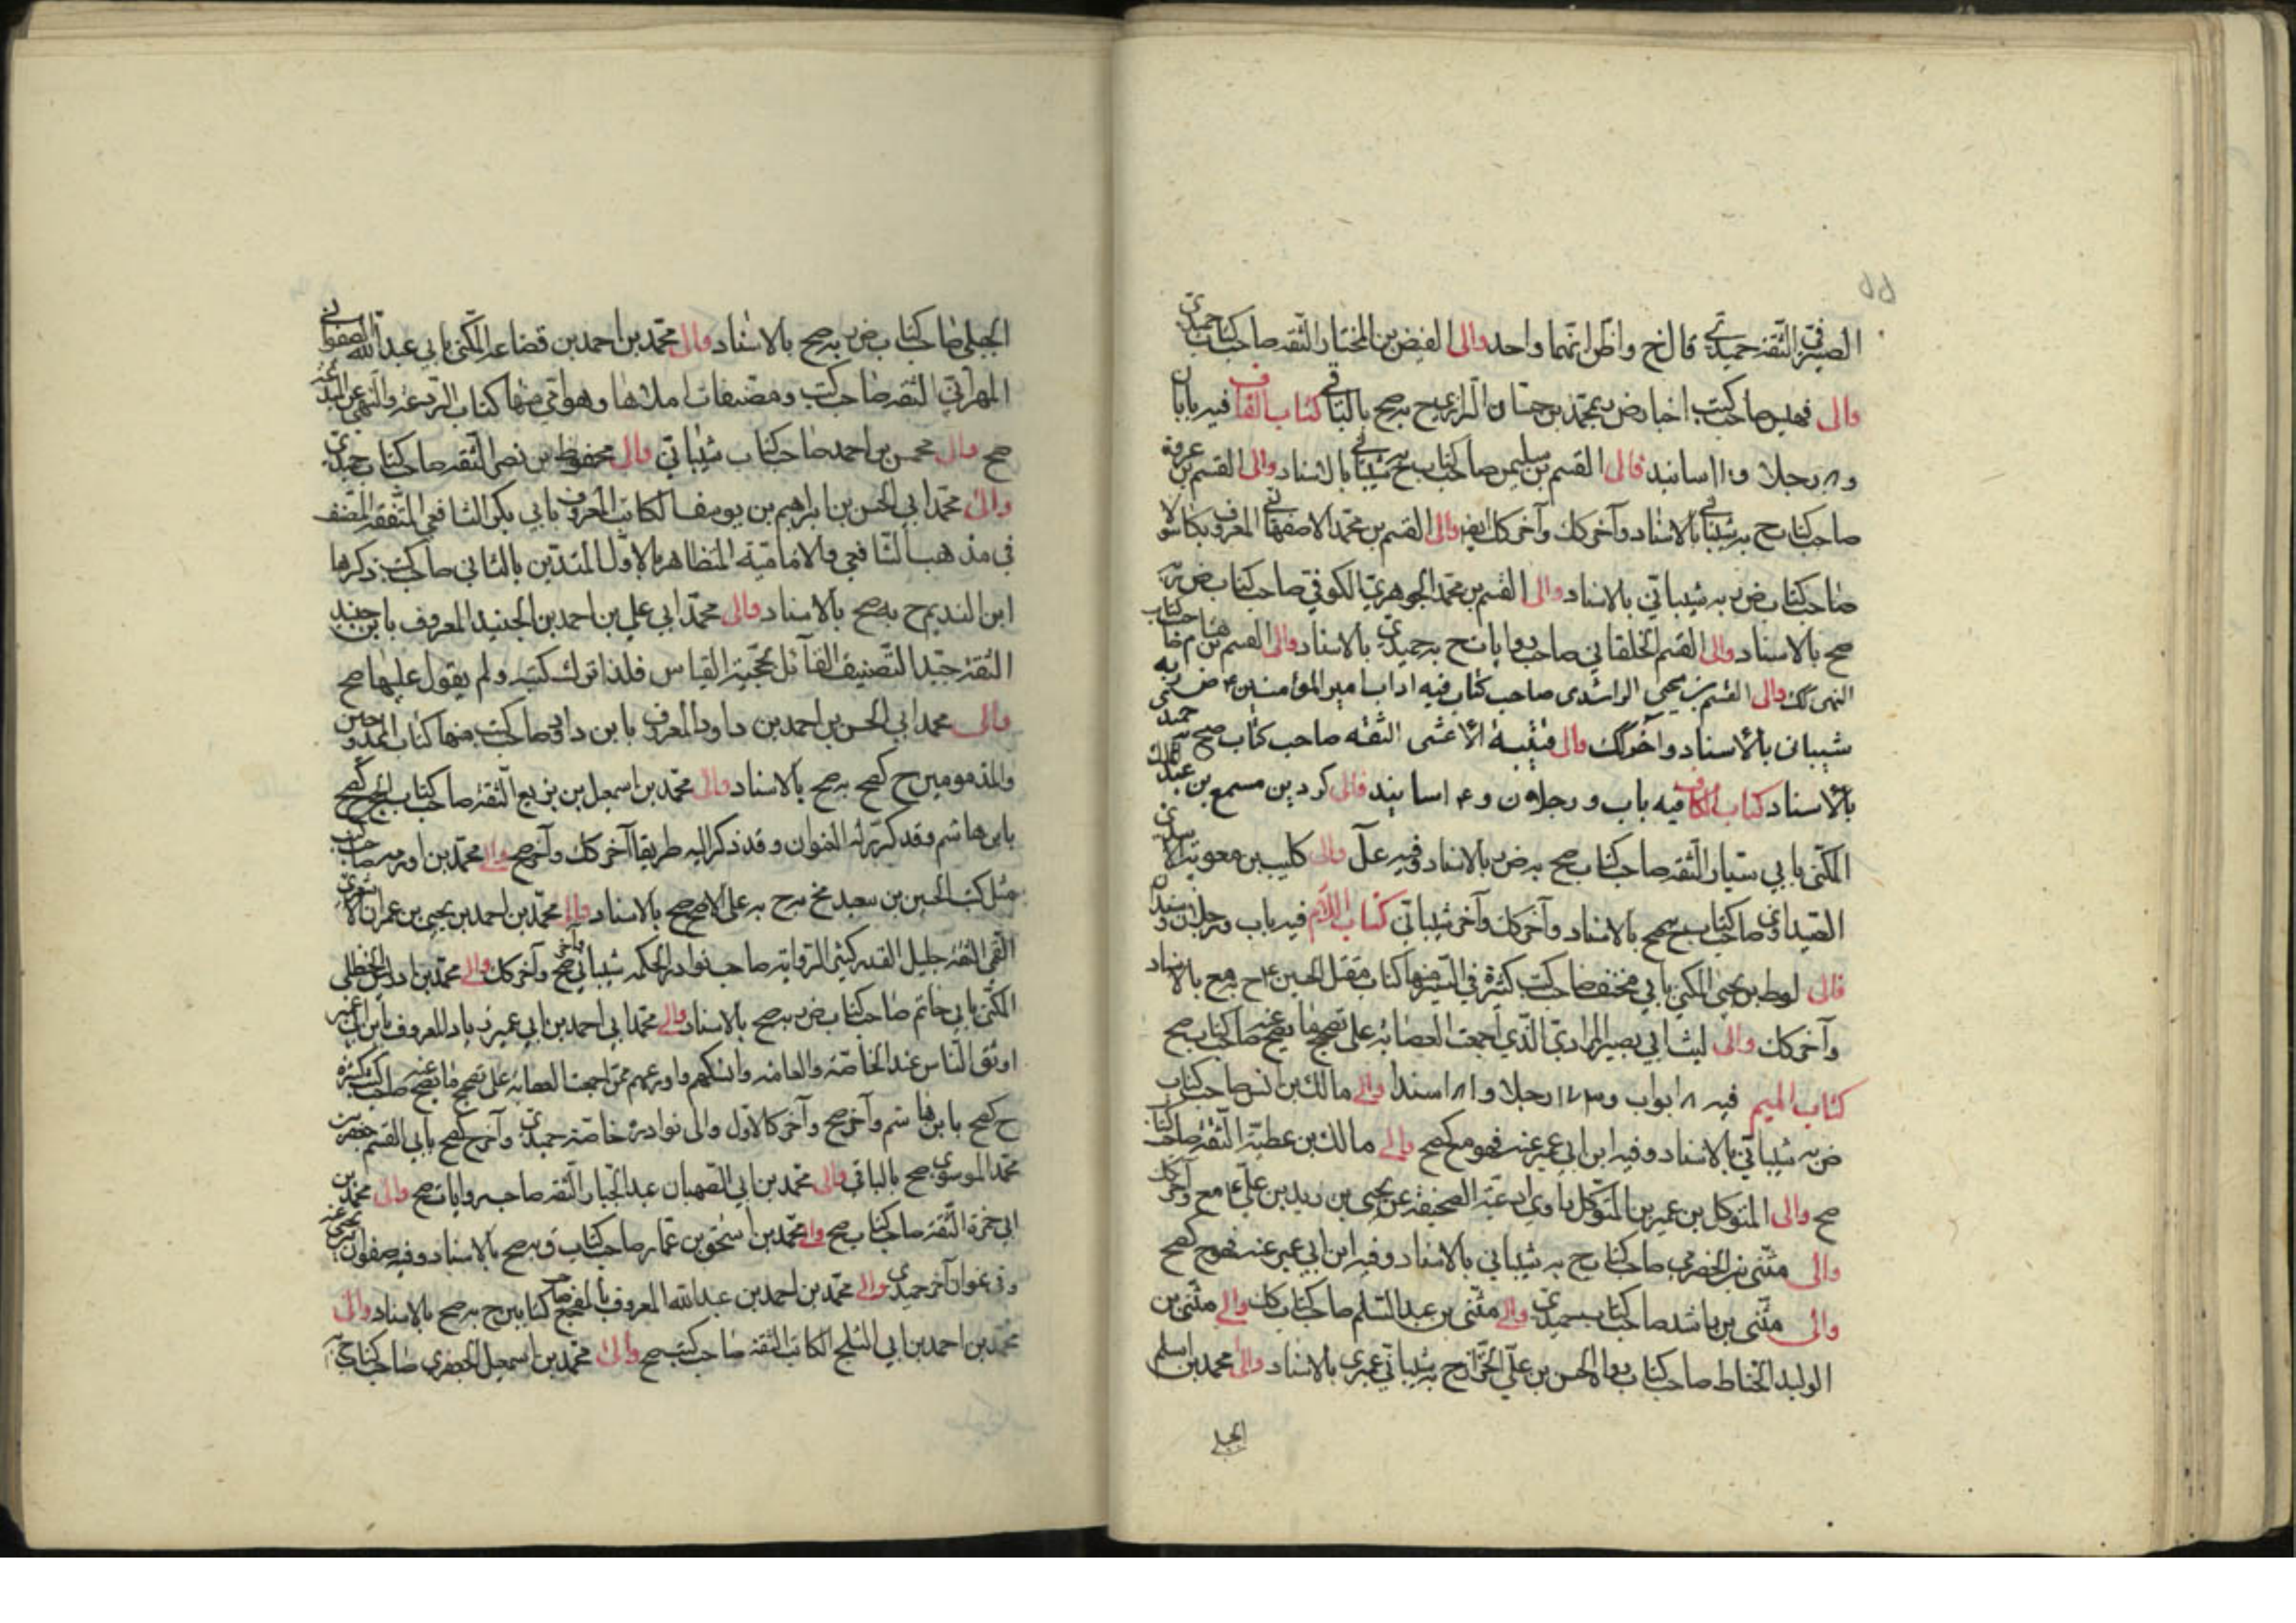 الصيرفي الثقة حميدي قال خ واظن انهما واحد والى الفيض بن المختار الثقة صاحب كتاب حميدي
والى صاحب كتب اخبار ض به محمد بن حسان الرازي ح به صح بالباقي كتاب القاف فيه بابان
و٨ رجلا و١١ اسانيد فالى القسم بن سليمن صاحب كتاب شيباني بالاسناد والى القسم بن عروة
صاحب كتاب ح به شيباني بالاسناد وآخر كك وآخر كك ايضا والى القسم بن محمد الاصفهاني المعروف بكاسولا
صاحب كتاب ض به شيباني بالاسناد والى القسم بن محمد الجوهري الكوفي صاحب كتاب ض به
صح بالاسناد والى القسم الخلقاني صاحب روايات ح به حميدي بالاسناد والى القسم بن
والى القسم بن يحيى الراشدي صاحب كتاب فيه اداب امير المؤمنين ع ض به
شيباني بالاسناد وآخر كك والى قتيبة الاعشى الثقه صاحب كتاب صح به حميد
بالاسناد كتاب الكاف فيه باب و رجلان و ٤ اسانيد فالى كردين مسمع بن عبد الملك
المكنى بابي سيار الثقة صاحب كتاب صح به ض به بالاسناد وفيه علل والى كليب بن معوية الاسدي
الصيداوي صاحب كتاب بالاسناد وآخر كك وآخر شيباني كتاب اللام فيه باب ورجلان و
فالى لوط بن يحيى المكنى بابي مخنف صاحب كتب كثيرة في السير منها كتاب مقتل الحسين ع ح به بالاسناد
وآخر كك والى ليث ابي بصير المرادي الذي اجمعت العصابة على تصحيح ما يصح عنه صاحب كتاب صح
كتاب الميم فيه ٨ ابواب و١٧٣ رجلا و١٨١ سندا والى مالك بن انس صاحب كتاب
ض به شيباني بالاسناد وفيه ابن ابي عمير عنه فهو م كصح والى مالك بن عطية الثقة صاحب كتاب
صح والى المتوكل بن عمير بن المتوكل راوي ادعية الصحيفة عن يحيى بن زيد بن علي ع مع وآخر كك
والى مثنى بن الحضرمي صاحب كتاب ح به شيباني بالاسناد وفيه ابن ابي عمير عنه فهو ح كصح
والى مثنى بن راشد صاحب كتاب حميدي والى مثنى بن عبد السلم صاحب كتاب كك والى مثنى بن
الوليد الحناط صاحب كتاب رواه الحسن بن علي الخزاز ح به شيباني عمري بالاسناد والى محمد بن اسلم
الجبلي
الجبلي صاحب كتاب ض به صح بالاسناد والى محمد بن احمد بن قضاعة المكنى بابي عبد الله الصفواني
المهراني الثقة صاحب كتب ومصنفات املاها وهو امي منها كتاب الرد على والنهي عن
صح والى محسن بن احمد صاحب كتاب شيباني والى محفوظ بن نصر الثقة صاحب كتاب حميدي
والى محمد ابي الحسن بن ابراهيم بن يوسف الكاتب المعروف بابي بكر الشافعي المتفقه المصنف
في مذهب الشافعي والامامية المتظاهر بالاول المتدين بالثاني صاحب كتب ذكرها
ابن النديم ح به صح بالاسناد والى محمد ابي علي بن احمد بن الجنيد المعروف بابن جنيد
الثقة جيد التصنيف القائل بحجية القياس فلذا ترك كتبه ولم يعول عليها صح
والى محمد ابي الحسن بن احمد بن داود المعروف بابن داود صاحب كتب منها كتاب الممدوحين
والمذمومين ح كصح به صح بالاسناد والى محمد بن اسمعيل بن بزيع الثقة صاحب كتاب الحج كصح
بابن هاشم وقد كرر له العنوان وقد ذكر اليه طريقا آخر كك وآخر صح والى محمد بن اورمه صاحب كتب
مثل كتب الحسين بن سعيد به على الاصح صح بالاسناد والى محمد بن احمد بن يحيى بن عمران الاشعري
القمي الثقة جليل القدر كثير الرواية صاحب نوادر الحكمه شيباني وآخر صح وآخر كك والى محمد بن ادريس الحنظلي
المكنى بابي حاتم صاحب كتاب ض به صح بالاسناد والى محمد ابي احمد بن ابي عمير زياد المعروف بابن ابي عمير
اوثق الناس عند الخاصة والعامة وانسكهم واورعهم ممن اجمعت العصابة على تصحيح ما يصح عنه صاحب كتب كثيرة
ح كصح بابن هاشم وآخر صح وآخر كالاول والى نوادره خاصة حميدي وآخر ح كصح بابي القسم جعفر بن
محمد الموسوي صح بالباقي والى محمد بن ابي الصهبان عبد الجبار الثقة صاحب روايات صح والى محمد بن
ابي حمزة الثقة صاحب كتاب صح والى محمد بن اسحق بن عمار صاحب كتاب ق به صح بالاسناد وفيه صفوان بن يحيى عنه
وفي عنوان آخر حميدي والى محمد بن احمد بن عبد الله المعروف بالمفجع صاحب كتابين ح به صح بالاسناد والى
محمد بن احمد بن ابي الثلج الكاتب الثقة صاحب كتب صح والى محمد بن اسمعيل الجعفري صاحب كتاب ح به